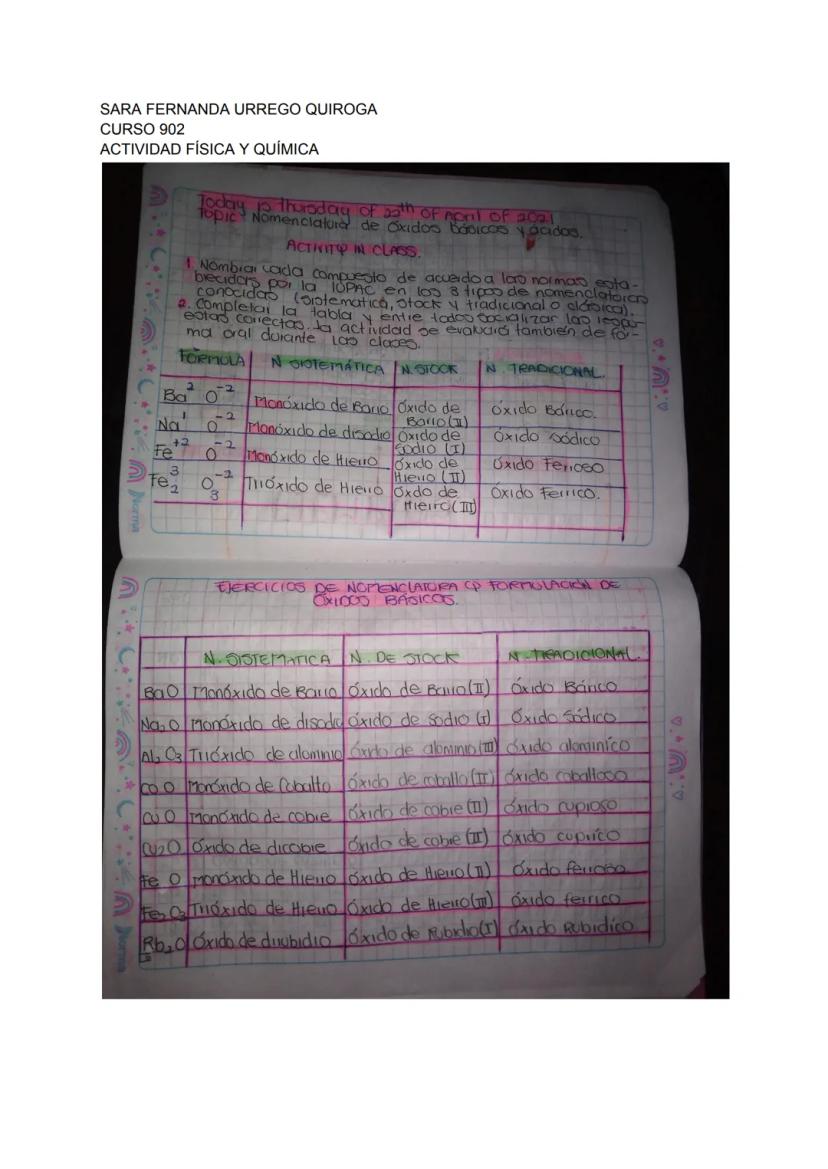 SARA FERNANDA URREGO QUIROGA
CURSO 902
ACTIVIDAD FÍSICA Y QUÍMICA
Today is thursday of 22th of April of 2021
Topic Nomenclatura de óxidos básicos y ácidos.
ACTIVITY IN CLASS.
1. Nombrar cada compuesto de acuerdo a las normas esta-
blecidas por la IUPAC en los 3 tipos de nomenclatoras
conocidas (sistematica, stock y tradicional o clásica).
2. Completar la tabla y entre todos socializar las respu-
estas correctas. la actividad se evaluará también de for-
ma oral durante las clases.
FORMULA N SISTEMÁTICA N. STOCK N. TRADICIONAL.
Ba² O⁻² Monóxido de Bario Óxido de Bario (II) Óxido Bárico.
Na¹ O⁻² Monóxido de disodio Óxido de sodio (I) Óxido sódico
Fe⁺² O⁻² Monóxido de Hierro Óxido de Hierro (II) Óxido Ferroso
Fe³₂ O⁻²₃ Trióxido de Hierro Óxdo de Hierro (III) Óxido Ferrico.
Norma
EJERCICIOS DE NOMENCLATURA FORMULACIÓN DE
ÓXIDOS BÁSICOS.
N. SISTEMATICA N. DE STOCK N. TRADICIONAL.
BaO Monóxido de Bario Óxido de Bario (II) Óxido Bárico
Na₂O Monóxido de disodo óxido de sodio (I) Óxido Sódico
Al₂O₃ Trióxido de alominio óxido de alominio (III) óxido alominíco
CoO Monóxido de Cobalto óxido de cobalto (II) óxido cobaltoso
CuO Monóxido de cobre óxido de cobre (II) óxido cuproso
Cu2O Óxido de dicobre Óxido de cobre (II) óxido cuprico
Fe O monóxido de Hierro óxido de Hierro (II) Óxido ferroso
Fe₂O₃ Trióxido de Hierro Óxido de Hierro (III) óxido ferrico
Rb₂O óxido de dirubidio óxido de Rubidio (I) óxido Rubidíco
Norma